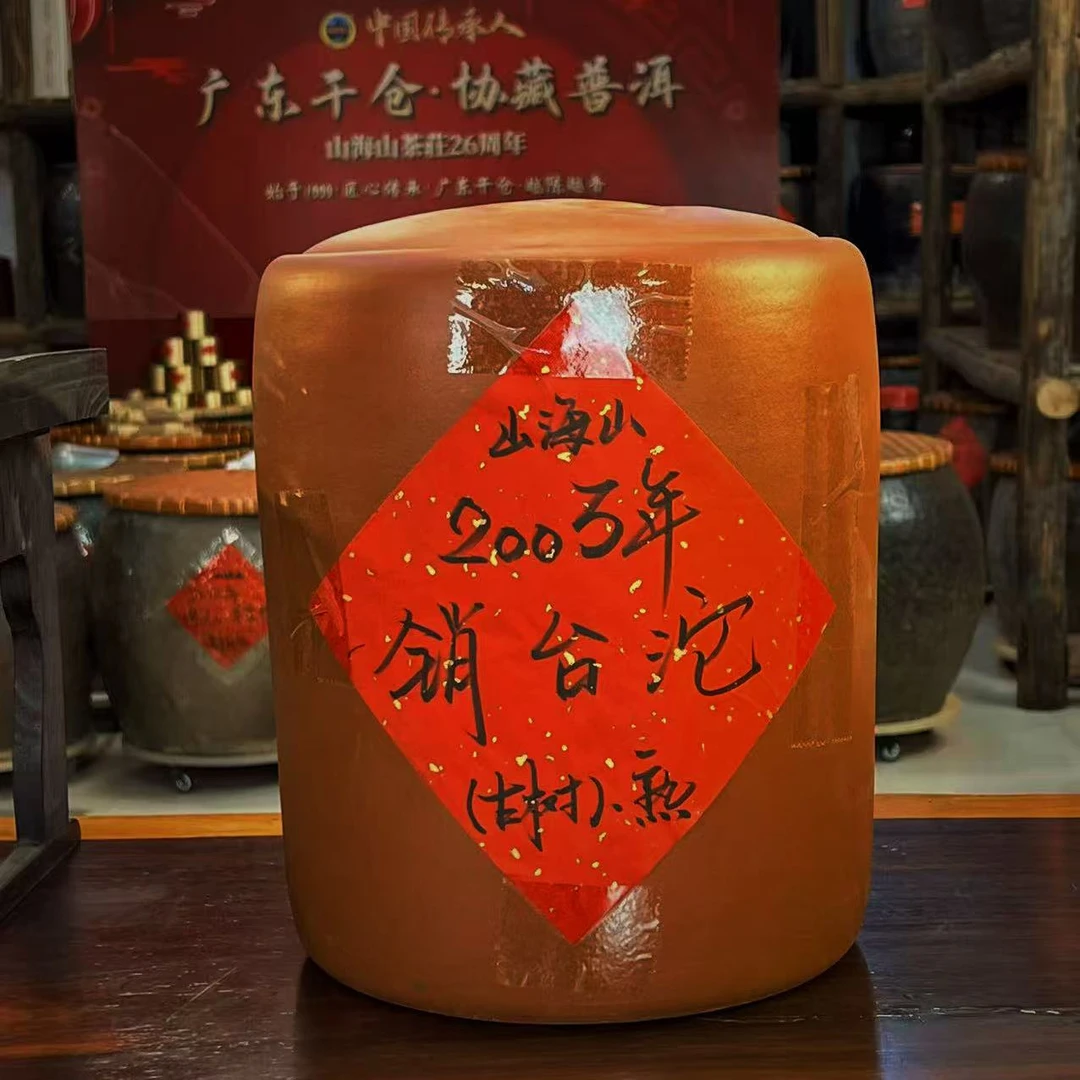 中国传承人
广东干仓·协藏普洱
山海山茶莊26周年
始于1999·匠心传承·广东干仓·越陈越香
山海山
2003年
销台沱
(古树).熟